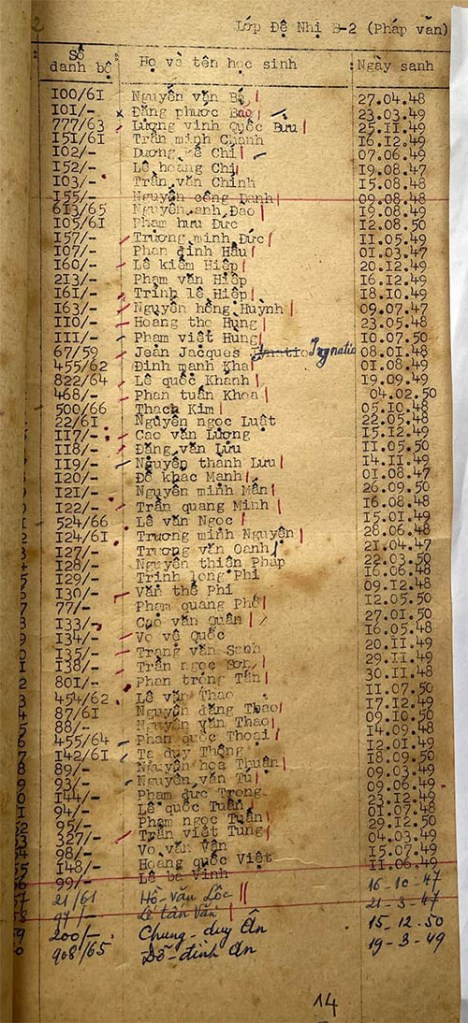 Lớp Đệ Nhị B-2 (Pháp văn)
Số danh bộ Họ và tên học sinh Ngày sanh
100/61 Nguyễn văn 27.04.48
101/- Đặng phước Bảo 23.03.49
777/63 Lương vinh Quốc Bửu 25.11.49
151/61 Trần minh Chánh 16.12.49
102/- Dương Chi 07.06.49
152/- Lê hoàng Chỉ 19.08.47
103/- Trần văn Chính 15.08.48
155/- Nguyễn công Danh 09.08.48
613/65 Nguyễn anh Đạo 19.08.49
105/61 Phạm hưu Đức 12.08.50
157/- Trương minh Đức 11.05.49
107/- Phan đình Hậu 01.03.47
160/- Lê kiêm Hiệp 20.12.49
213/- Phạm văn Hiệp 16.12.49
161/- Trinh lê Hiệp 18.10.49
163/- Nguyễn hồng Huỳnh 09.07.47
110/- Hoang thọ Hùng 23.05.48
111/- Phạm việt Hùng 10.07.50
67/59 Jean Jacques Ignatio 08.01.48
455/62 Đinh mạnh Kha 01.08.49
822/64 Lê quốc Khanh 19.09.49
468/- Phan tuấn Khoa 04.02.50
500/66 Thạch Kim 05.10.48
22/61 Nguyễn ngọc Luật 22.05.48
117/- Cao văn Lượng 15.12.49
118/- Đăng văn Lựu 11.05.50
119/- Nguyễn thanh Lưu 14.11.49
120/- Đỗ khac Mạnh 01.08.47
121/- Nguyễn minh Mẫn 26.09.50
122/- Trần quang Minh 16.08.48
524/66 Lê văn Ngọc 15.01.49
124/61 Trương minh Nguyên 28.06.48
127/- Trương văn Oanh 21.04.47
128/- Nguyễn thiên Pháp 22.03.50
129/- Trinh long Phi 10.06.48
130/- Văn thế Phi 09.12.48
77/- Phạm quang Phổ 12.05.50
133/- Cao văn Quân 27.01.50
134/- Vo vệ Quốc 16.05.48
135/- Trang văn Sanh 20.11.49
138/- Trần ngọc Sơn 29.11.49
801/- Phan trọng Tấn 30.11.48
454/62 Lê văn Thao 11.07.50
87/61 Nguyễn đăng Thao 17.12.49
88/- Nguyễn văn Thao 09.10.50
455/64 Phan quốc Thoại 14.09.48
142/61 Tạ duy Thông 12.01.49
89/- Nguyễn hoa Thuận 18.09.50
93/- Nguyễn văn Tú 09.03.49
144/- Phạm đức Trọng 09.06.49
94/- Lê quốc Tuấn 23.12.49
95/- Phạm ngọc Tuấn 01.07.48
327/- Trần việt Tung 29.12.50
98/- Vo văn Vân 04.03.49
148/- Hoàng quốc Việt 15.07.49
99/- Lê bá Vinh 11.06.49
21/61 Hồ-văn Lôc 16-10-47
97/- Lê tân Văn 21-3-47
200/- Chung-duy Ân 15-12.50
908/65 Đỗ-đình Ân 19-3-49
14